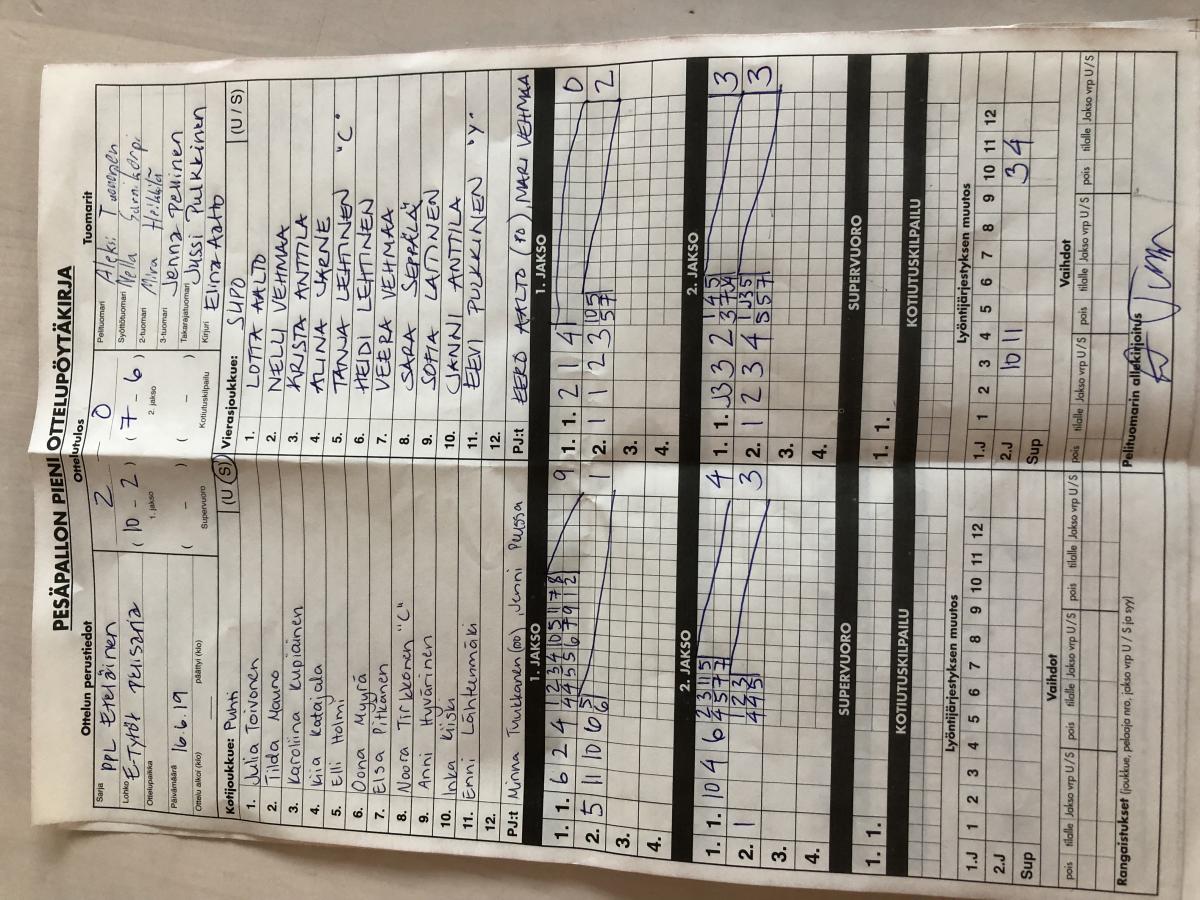 PESÄPALLON PIENI OTTELUPÖYTÄKIRJA
Ottelun perustiedot
Ottelutulos
Tuomarit
Sarja PPL Eteläinen
Lohko E-Tytöt perussarja
Ottelupaikka
Päivämäärä 16.6.19
Ottelu alkoi (klo) päättyi (klo)
2 – 0
( 10 – 2 ) ( 7 – 6 )
1. jakso 2. jakso
( – ) ( – )
Supervuoro Kotiutuskilpailu
Pelituomari Aleksi
Syöttötuomari Nella
2-tuomari Mira Heikkilä
3-tuomari Jenna Pellinen
Takarajatuomari Jussi Pulkkinen
Kirjuri Elina Aalto
Kotijoukkue: Puhti (U / S)
1. Julia Toivonen
2. Tilda Mauno
3. Karoliina Kupiainen
4. Kiia Katajala
5. Elli Holmi
6. Oona Myyrä
7. Elsa Pitkänen
8. Noora Tirkkonen "C"
9. Anni Hyvärinen
10. Inka Kiiski
11. Enni Lähteenmäki
12.
PJ:t Minna Turkkanen (00), Jenni Purssa
Vierasjoukkue: SUPO (U / S)
1. LOTTA AALTO
2. NELLI VEHMAA
3. KRISTA ANTTILA
4. ALINA JARNE
5. TANJA LEHTINEN "C"
6. HEIDI LEHTINEN
7. VEERA VEHMAA
8. SARA SEPPÄLÄ
9. SOFIA LAITINEN
10. JANNI ANTTILA
11. EEVI PULKKINEN "Y"
12.
PJ:t EERO AALTO (PJ) MARI VEHMAA
1. JAKSO
1. 1. 6 2 4 1 2 3 4 10 5 11 7 8 9
4 4 5 5 6 7 9 1 2
2. 5 11 10 6 5 1
6
3.
4.
1. JAKSO
1. 1. 2 1 4 0
2. 1 1 2 3 10 5 2
5 7
3.
4.
2. JAKSO
1. 1. 10 4 6 2 3 11 5 4
4 5 7 7
2. 1 1 2 3 3
4 4 5
3.
4.
2. JAKSO
1. 1. J3 3 2 1 4 5 3
3 7 J4
2. 1 2 3 4 1 J3 5 3
5 5 7
3.
4.
SUPERVUORO
1. 1.
SUPERVUORO
1. 1.
KOTIUTUSKILPAILU
KOTIUTUSKILPAILU
Lyöntijärjestyksen muutos
1.J 1 2 3 4 5 6 7 8 9 10 11 12
2.J
Sup
Lyöntijärjestyksen muutos
1.J 1 2 3 4 5 6 7 8 9 10 11 12
2.J 10 11 3 4
Sup
Vaihdot
pois tilalle Jakso vrp U/S pois tilalle Jakso vrp U/S pois tilalle Jakso vrp U/S
Vaihdot
pois tilalle Jakso vrp U/S pois tilalle Jakso vrp U/S pois tilalle Jakso vrp U/S
Rangaistukset (joukkue, pelaaja nro, jakso vrp U / S ja syy)
Pelituomarin allekirjoitus